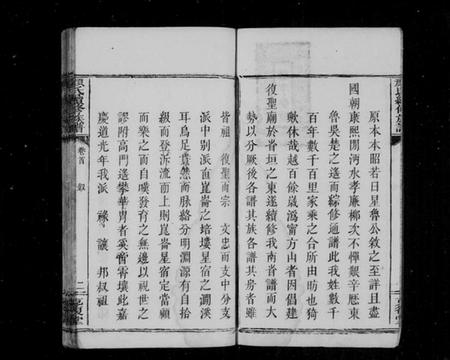 原原本本昭若日星魯公敘之至詳且盡
國朝康熙間沔水孝廉榔次不憚艱辛歷東
魯吳楚之遙而綜修通譜此我姓數千
百年數千百里家乘之合所由昉也猗
歟休哉越百餘歲溈甯方山者因倡建
復聖廟於省垣之東遂續修我南省譜而大
勢以分厥後各譜其族各譜其房者雖
皆祖 復聖而宗 文忠而支中分支
派中別派直崑崙之培塿星宿之澗溪
耳烏足貴然而脉絡分明淵源有自拾
級而登泝流而上則崑崙星宿定當顧
而樂之而自嘆發育之無邊以視世之
謬附高門遙攀華胄者奚啻霄壤此嘉
慶道光年我派 祿 讓 邦叔祖
顏氏續修族譜
卷首 敘
二